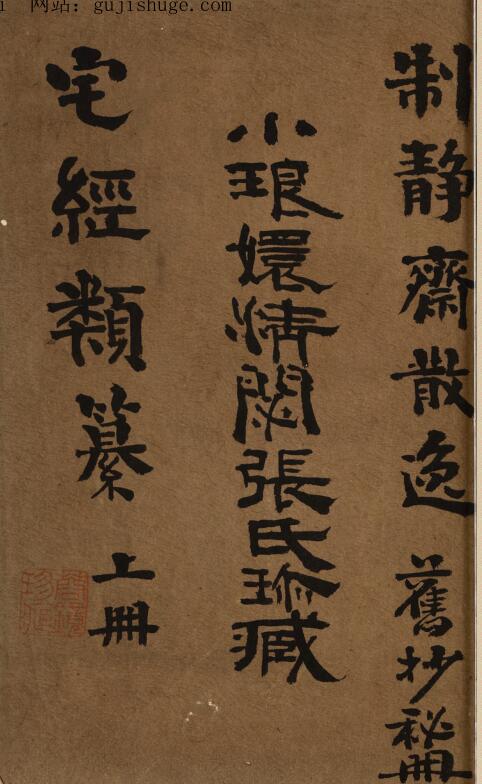 网站：gujishuge.com
制静齋散逸 舊抄秘冊
小琅嬛清閟張氏珎藏
宅經類纂 上冊